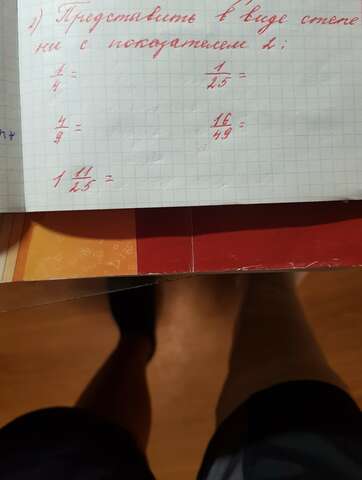 2) Представить в виде степе
ни с показателем 2:
1/4 = 1/25 =
4/9 = 16/49 =
1 11/25 =